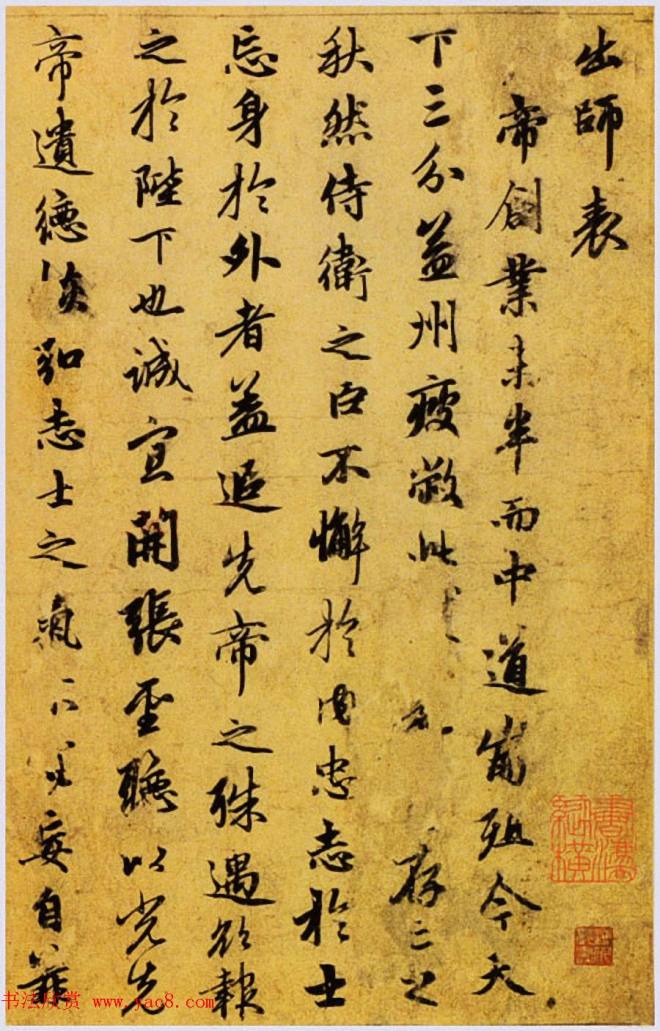 出師表
帝創業未半而中道崩殂今天
下三分益州疲敝此存亡之
秋然侍衛之臣不懈於内忠志於士
忘身於外者盖追先帝之殊遇欲報
之於陛下也誠宜開張聖聽以光先
帝遺德恢弘志士之氣不宜妄自菲
书法欣赏 www.yac8.com